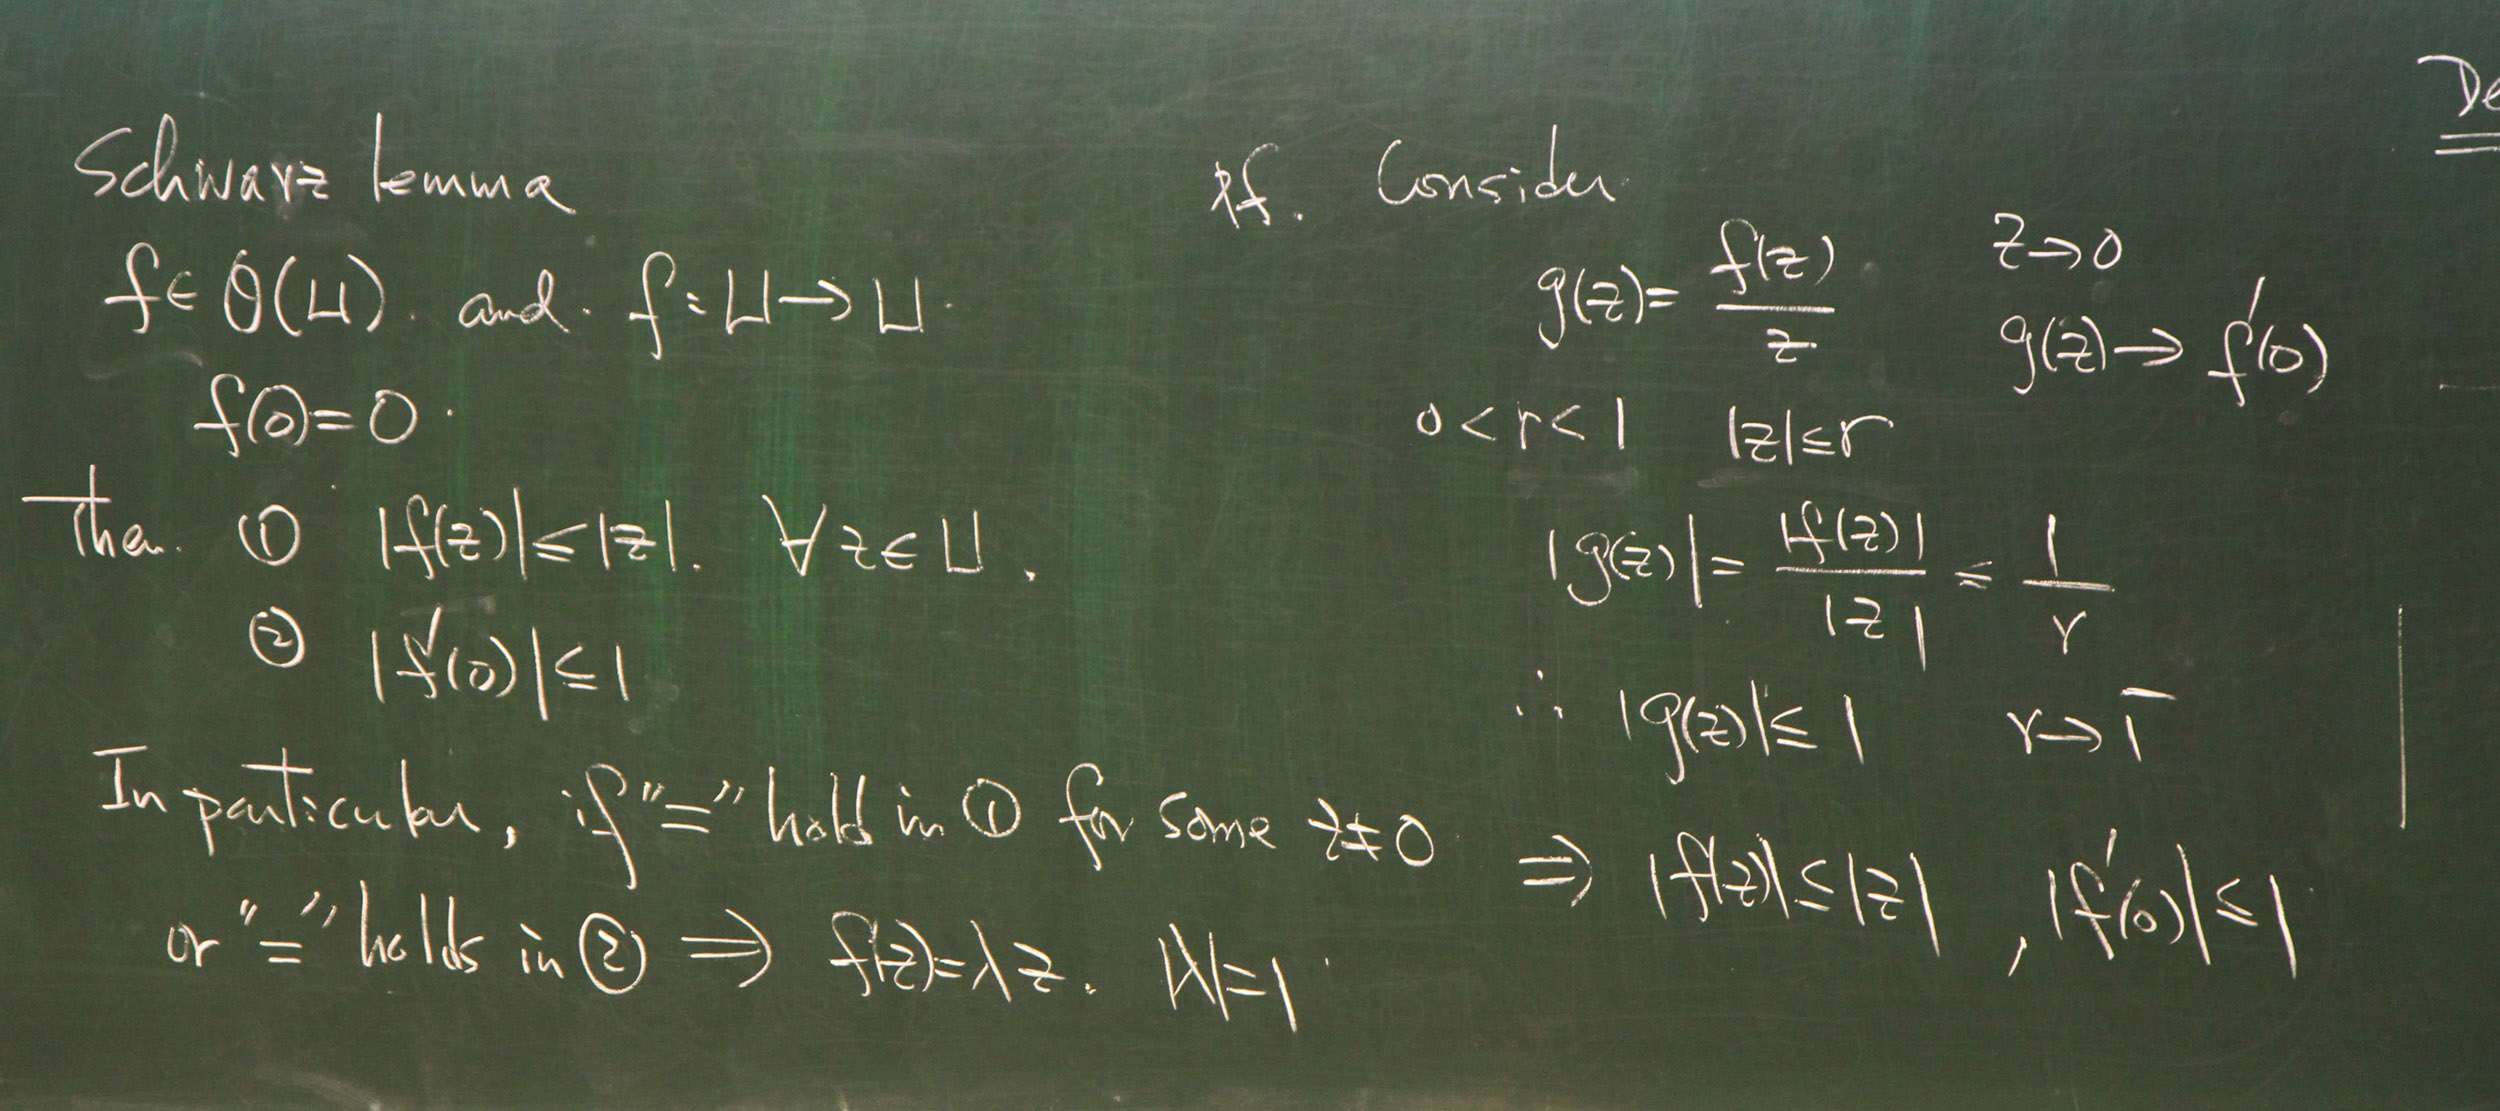 Schwarz lemma
f∈O(U). and. f:U→U.
f(0)=0.
Then. ① |f(z)|≤|z|. ∀z∈U.
② |f'(0)|≤1
In particular, if "=" hold in ① for some z≠0
or "=" holds in ② ⇒ f(z)=λz. |λ|=1.
pf. Consider
g(z)= f(z)/z z→0
g(z)→f'(0)
0<r<1 |z|≤r
|g(z)|= |f(z)|/|z| ≤ 1/r
∴ |g(z)|≤1 r→1⁻
⇒ |f(z)|≤|z| , |f'(0)|≤1
De